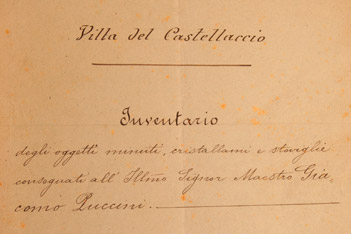 Villa del Castellaccio
Inventario
degli oggetti minuti, cristallami e stoviglie
consegnati all' Illmo Signor Maestro Gia,
como Puccini.